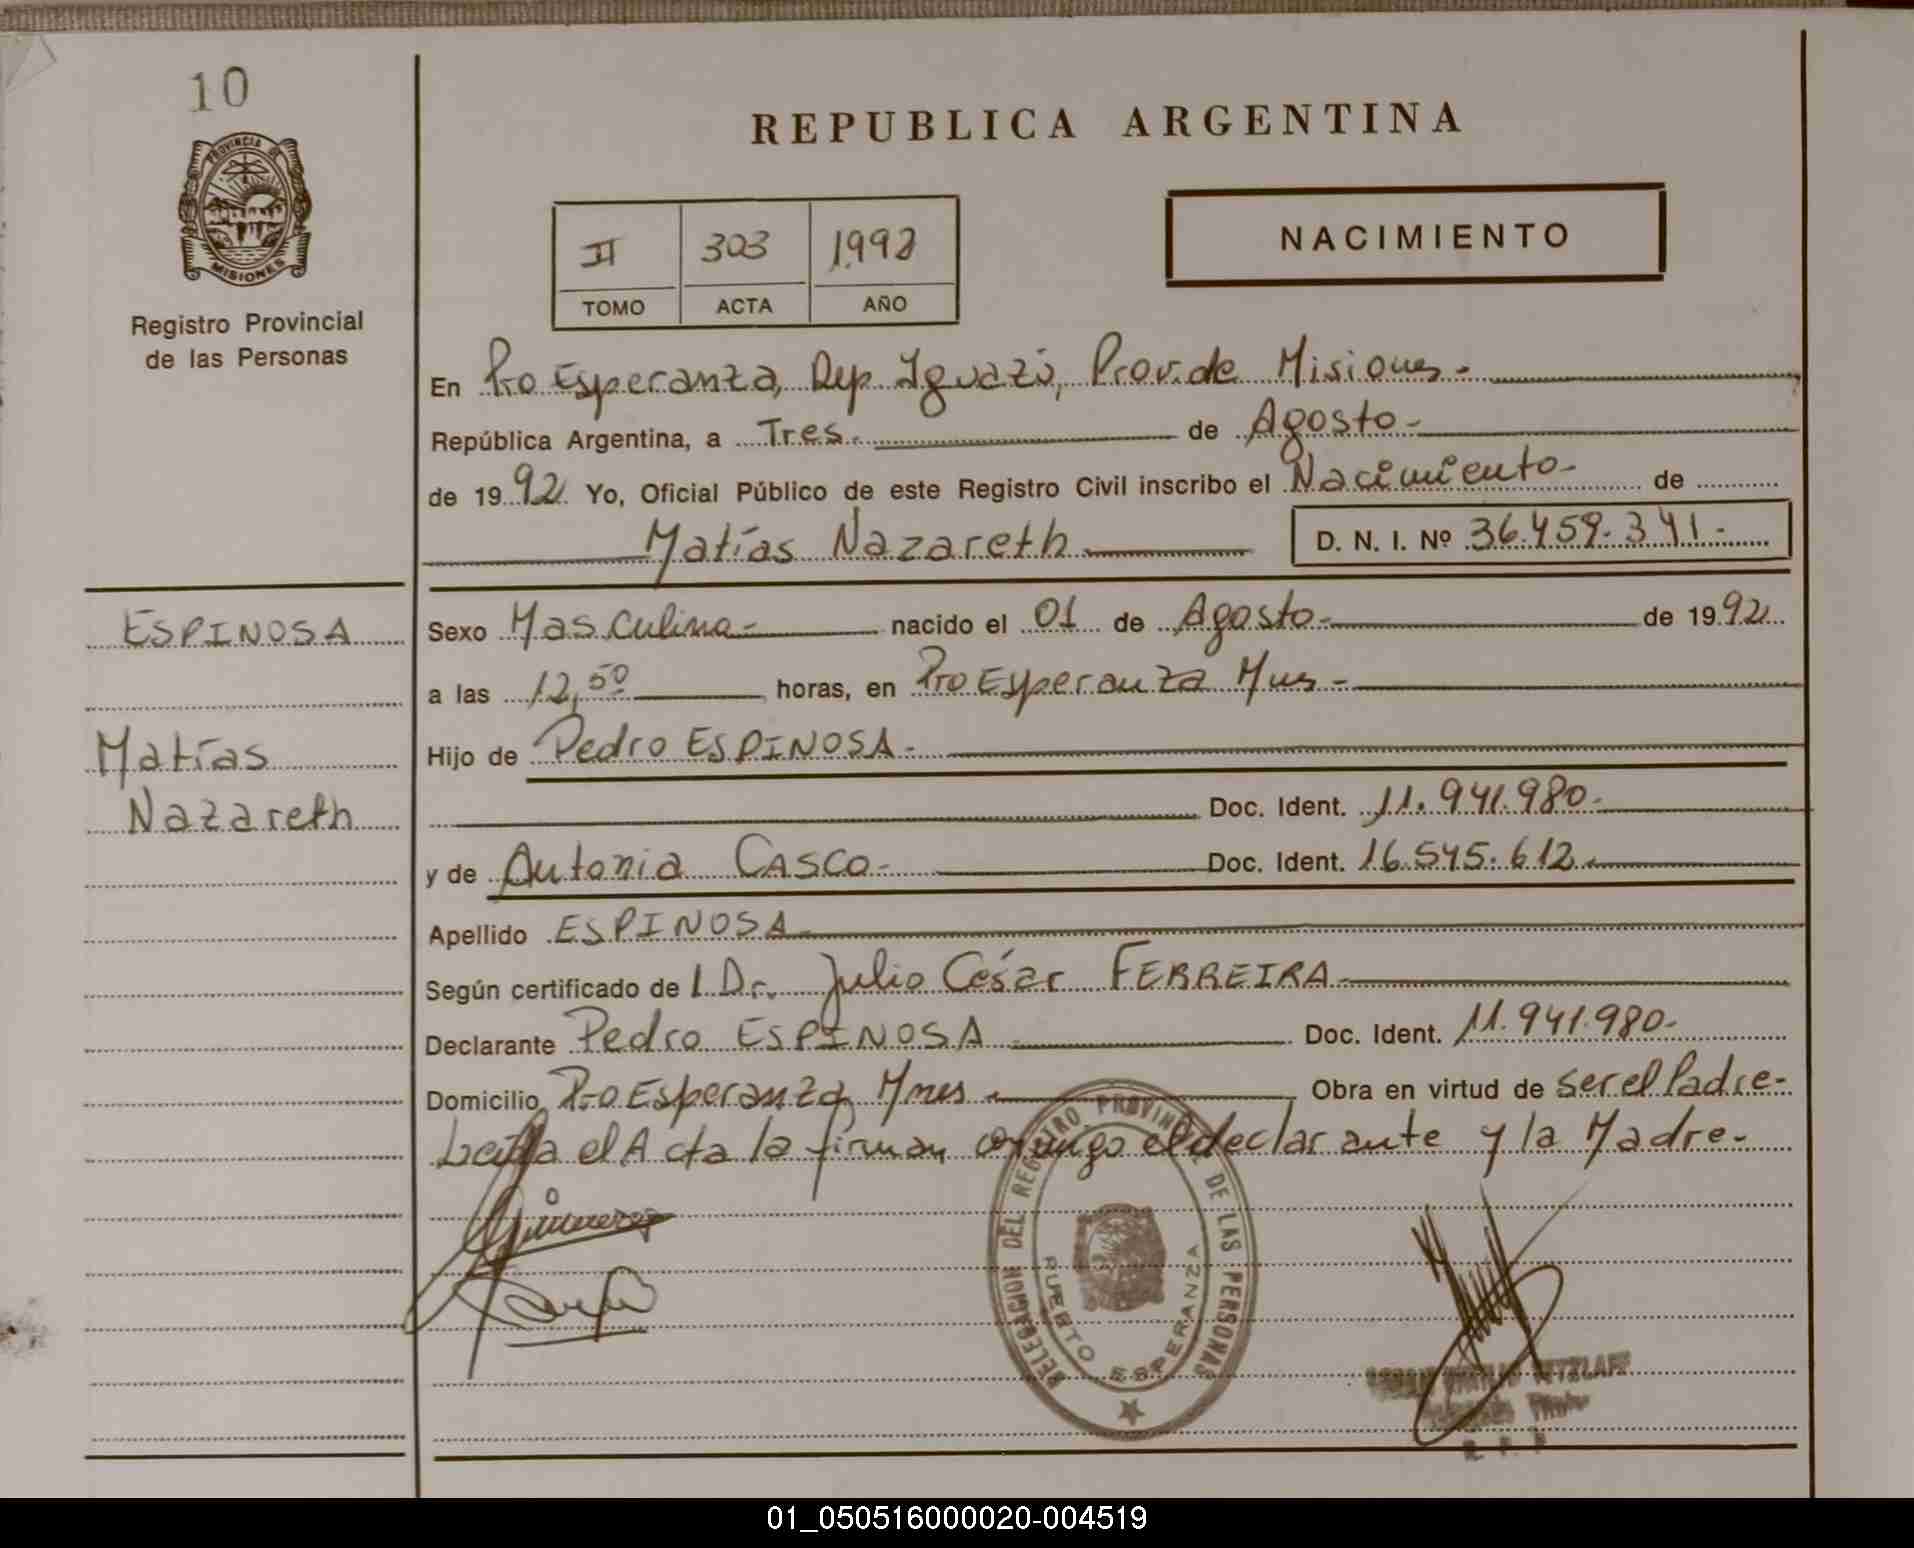 10
PROVINCIA DE
MISIONES
Registro Provincial
de las Personas
REPUBLICA ARGENTINA
II 303 1992
TOMO ACTA AÑO
NACIMIENTO
En Pto Esperanza, Dep. Iguazú, Prov. de Misiones.-
República Argentina, a Tres.- de Agosto-
de 1992 Yo, Oficial Público de este Registro Civil inscribo el Nacimiento- de
Matías Nazareth
D. N. I. Nº 36.459.341.-
ESPINOSA
Matías
Nazareth
Sexo Masculino- nacido el 01 de Agosto- de 1992
a las 12,50 horas, en Pto Esperanza Mnes-
Hijo de Pedro ESPINOSA-
Doc. Ident. 11.941.980-
y de Antonia CASCO- Doc. Ident. 16.545.612.-
Apellido ESPINOSA-
Según certificado de l Dr. Julio César FERREIRA-
Declarante Pedro ESPINOSA Doc. Ident. 11.941.980-
Domicilio Pto Esperanza Mnes - Obra en virtud de ser el Padre-
Leída el Acta la firman conmigo el declarante y la Madre-
DELEGACION DEL REGISTRO PROVINCIAL DE LAS PERSONAS
PUERTO ESPERANZA
R. P. P
01_050516000020-004519